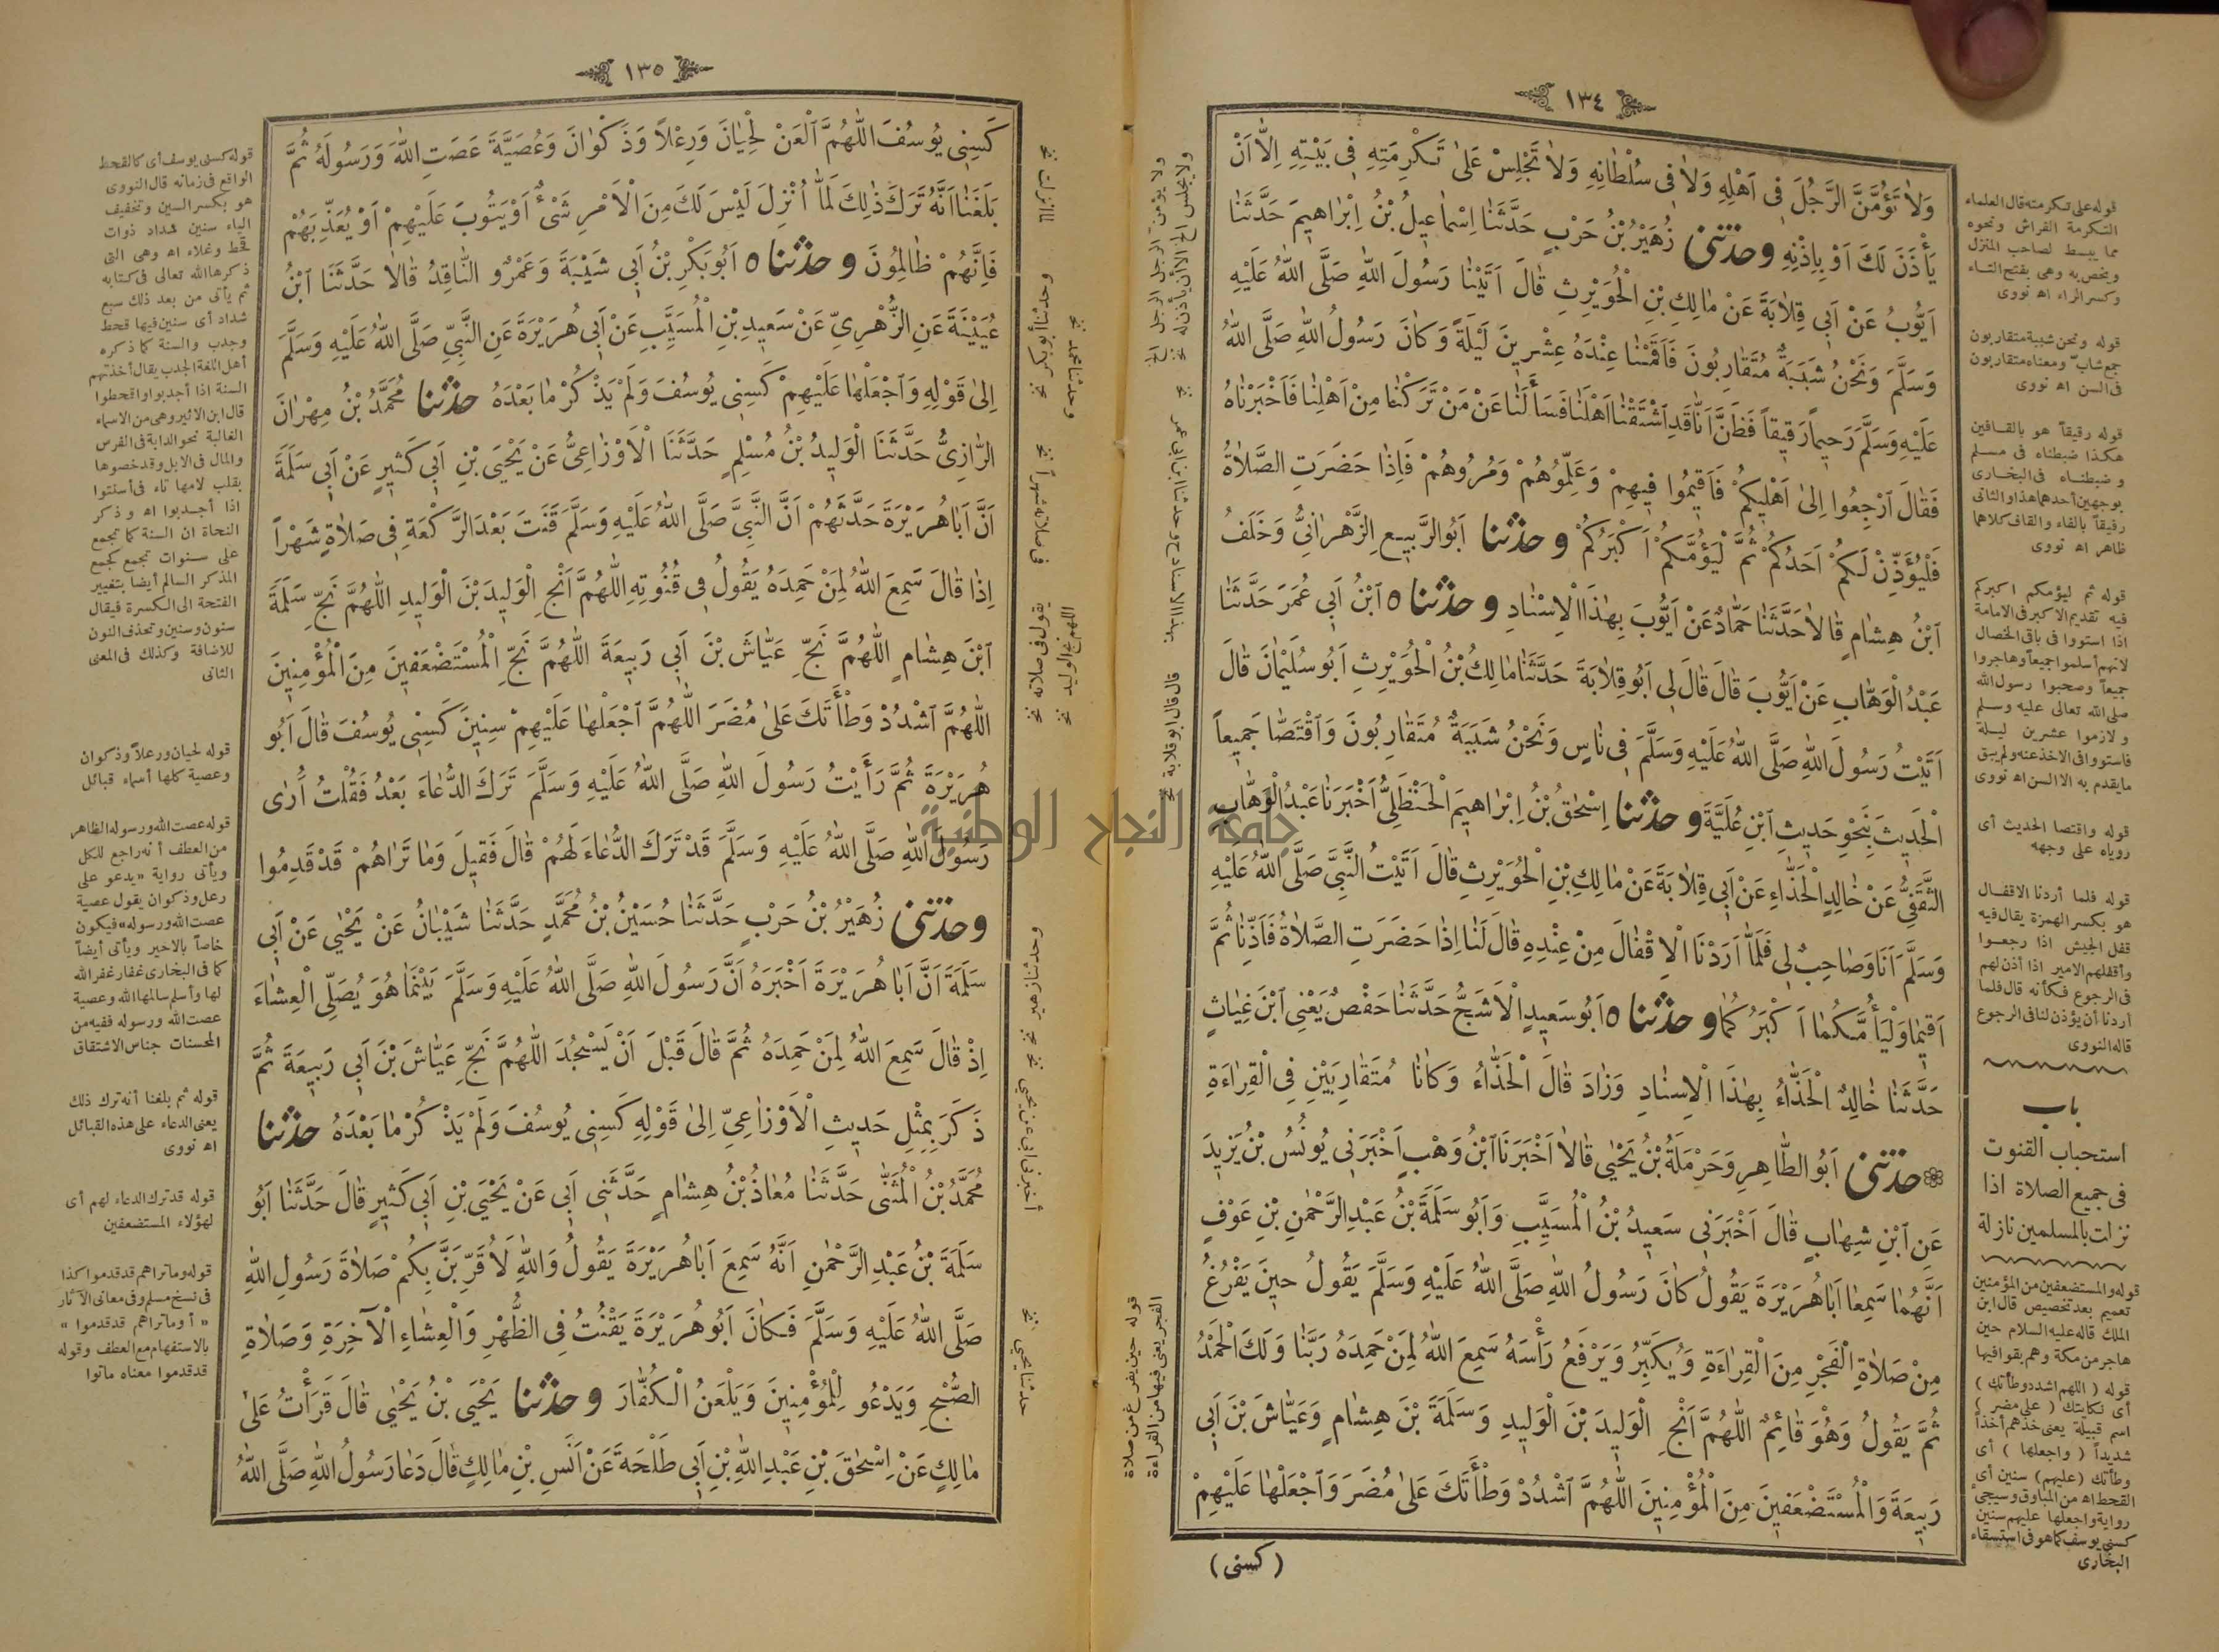 ١٣٤
وَلَا تَؤُمَّنَّ الرَّجُلَ فِي أَهْلِهِ وَلَا فِي سُلْطَانِهِ وَلَا تَجْلِسْ عَلَى تَكْرِمَتِهِ فِي بَيْتِهِ إِلَّا أَنْ
يَأْذَنَ لَكَ أَوْ بِإِذْنِهِ وحدثنى زُهَيْرُ بْنُ حَرْبٍ حَدَّثَنَا إِسْمَاعِيلُ بْنُ إِبْرَاهِيمَ حَدَّثَنَا
أَيُّوبُ عَنْ أَبِي قِلَابَةَ عَنْ مَالِكِ بْنِ الْحُوَيْرِثِ قَالَ أَتَيْنَا رَسُولَ اللهِ صَلَّى اللهُ عَلَيْهِ
وَسَلَّمَ وَنَحْنُ شَبَبَةٌ مُتَقَارِبُونَ فَأَقَمْنَا عِنْدَهُ عِشْرِينَ لَيْلَةً وَكَانَ رَسُولُ اللهِ صَلَّى اللهُ
عَلَيْهِ وَسَلَّمَ رَحِيماً رَقِيقاً فَظَنَّ أَنَّا قَدِ اشْتَقْنَا أَهْلَنَا فَسَأَلَنَا عَنْ مَنْ تَرَكْنَا مِنْ أَهْلِنَا فَأَخْبَرْنَاهُ
فَقَالَ ارْجِعُوا إِلَى أَهْلِيكُمْ فَأَقِيمُوا فِيهِمْ وَعَلِّمُوهُمْ وَمُرُوهُمْ فَإِذَا حَضَرَتِ الصَّلَاةُ
فَلْيُؤَذِّنْ لَكُمْ أَحَدُكُمْ ثُمَّ لْيَؤُمَّكُمْ أَكْبَرُكُمْ وحدثنا أَبُو الرَّبِيعِ الزَّهْرَانِيُّ وَخَلَفُ
ابْنُ هِشَامٍ قَالَا حَدَّثَنَا حَمَّادٌ عَنْ أَيُّوبَ بِهَذَا الْإِسْنَادِ وحدثناه ابْنُ أَبِي عُمَرَ حَدَّثَنَا
عَبْدُ الْوَهَّابِ عَنْ أَيُّوبَ قَالَ قَالَ لِي أَبُو قِلَابَةَ حَدَّثَنَا مَالِكُ بْنُ الْحُوَيْرِثِ أَبُو سُلَيْمَانَ قَالَ
أَتَيْتُ رَسُولَ اللهِ صَلَّى اللهُ عَلَيْهِ وَسَلَّمَ فِي نَاسٍ وَنَحْنُ شَبَبَةٌ مُتَقَارِبُونَ وَاقْتَصَّا جَمِيعاً
الْحَدِيثَ بِنَحْوِ حَدِيثِ ابْنِ عُلَيَّةَ وحدثنا إِسْحٰقُ بْنُ إِبْرَاهِيمَ الْحَنْظَلِيُّ أَخْبَرَنَا عَبْدُ الْوَهَّابِ
الثَّقَفِيُّ عَنْ خَالِدٍ الْحَذَّاءِ عَنْ أَبِي قِلَابَةَ عَنْ مَالِكِ بْنِ الْحُوَيْرِثِ قَالَ أَتَيْتُ النَّبِيَّ صَلَّى اللهُ عَلَيْهِ
وَسَلَّمَ أَنَا وَصَاحِبٌ لِي فَلَمَّا أَرَدْنَا الْإِقْفَالَ مِنْ عِنْدِهِ قَالَ لَنَا إِذَا حَضَرَتِ الصَّلَاةُ فَأَذِّنَا ثُمَّ
أَقِيمَا وَلْيَؤُمَّكُمَا أَكْبَرُكُمَا وحدثناه أَبُو سَعِيدٍ الْأَشَجُّ حَدَّثَنَا حَفْصٌ يَعْنِي ابْنَ غِيَاثٍ
حَدَّثَنَا خَالِدٌ الْحَذَّاءُ بِهَذَا الْإِسْنَادِ وَزَادَ قَالَ الْحَذَّاءُ وَكَانَا مُتَقَارِبَيْنِ فِي الْقِرَاءَةِ
حدثنى أَبُو الطَّاهِرِ وَحَرْمَلَةُ بْنُ يَحْيَى قَالَا أَخْبَرَنَا ابْنُ وَهْبٍ أَخْبَرَنِي يُونُسُ بْنُ يَزِيدَ
عَنِ ابْنِ شِهَابٍ قَالَ أَخْبَرَنِي سَعِيدُ بْنُ الْمُسَيَّبِ وَأَبُو سَلَمَةَ بْنُ عَبْدِ الرَّحْمٰنِ بْنِ عَوْفٍ
أَنَّهُمَا سَمِعَا أَبَا هُرَيْرَةَ يَقُولُ كَانَ رَسُولُ اللهِ صَلَّى اللهُ عَلَيْهِ وَسَلَّمَ يَقُولُ حِينَ يَفْرُغُ
مِنْ صَلَاةِ الْفَجْرِ مِنَ الْقِرَاءَةِ وَيُكَبِّرُ وَيَرْفَعُ رَأْسَهُ سَمِعَ اللهُ لِمَنْ حَمِدَهُ رَبَّنَا وَلَكَ الْحَمْدُ
ثُمَّ يَقُولُ وَهُوَ قَائِمٌ اللّٰهُمَّ أَنْجِ الْوَلِيدَ بْنَ الْوَلِيدِ وَسَلَمَةَ بْنَ هِشَامٍ وَعَيَّاشَ بْنَ أَبِي
رَبِيعَةَ وَالْمُسْتَضْعَفِينَ مِنَ الْمُؤْمِنِينَ اللّٰهُمَّ اشْدُدْ وَطْأَتَكَ عَلَى مُضَرَ وَاجْعَلْهَا عَلَيْهِمْ
(كسنى)
قوله على تكرمته قال العلماء
التكرمة الفراش ونحوه
مما يبسط لصاحب المنزل
ويخص به وهى بفتح التاء
وكسر الراء اه نووى
قوله ونحن شببة متقاربون
جمع شاب ومعناه متقاربون
فى السن اه نووى
قوله رقيقاً هو بالقافين
هكذا ضبطناه فى مسلم
وضبطناه فى البخارى
بوجهين أحدهما هذا والثانى
رفيقاً بالفاء والقاف كلاهما
ظاهر اه نووى
قوله ثم ليؤمكم اكبركم
فيه تقديم الاكبر فى الامامة
اذا استووا فى باقى الخصال
لانهم أسلموا جميعاً وهاجروا
جميعاً وصحبوا رسول الله
صلى الله تعالى عليه وسلم
ولازموا عشرين ليلة
فاستووا فى الاخذ عنه ولم يبق
مايقدم به الا السن اه نووى
قوله واقتصا الحديث أى
روياه على وجهه
قوله فلما أردنا الاقفال
هو بكسر الهمزة يقال فيه
قفل الجيش اذا رجعوا
وأقفلهم الامير اذا أذن لهم
فى الرجوع فكأنه قال فلما
أردنا أن يؤذن لنا فى الرجوع
قاله النووى
باب
استحباب القنوت
فى جميع الصلاة اذا
نزلت بالمسلمين نازلة
قوله والمستضعفين من المؤمنين
تعميم بعد تخصيص قال ابن
الملك قاله عليه السلام حين
هاجر من مكة وهم بقوا فيها
قوله (اللهم اشدد وطأتك)
أى نكايتك (على مضر)
اسم قبيلة يعنى خذهم أخذاً
شديداً (واجعلها) أى
وطأتك (عليهم) سنين أى
القحط اه من المبارق وسيجئ
رواية واجعلها عليهم سنين
كسنى يوسف كما هو فى استسقاء
البخارى
ولا يؤمن الرجل الرجل الخ
ولا يجلس الخ الا أن يأذن له نخ
بهذا الاسناد ح وحدثنا ابن ابى عمر نخ
قال قال ابو قلابة نخ
قوله حين يفرغ من صلاة
الفجر يعنى فيها من القراءة
١٣٥
كَسِنِي يُوسُفَ اللّٰهُمَّ الْعَنْ لِحْيَانَ وَرِعْلاً وَذَكْوَانَ وَعُصَيَّةَ عَصَتِ اللهَ وَرَسُولَهُ ثُمَّ
بَلَغَنَا أَنَّهُ تَرَكَ ذٰلِكَ لَمَّا أُنْزِلَ لَيْسَ لَكَ مِنَ الْأَمْرِ شَيْءٌ أَوْ يَتُوبَ عَلَيْهِمْ أَوْ يُعَذِّبَهُمْ
فَإِنَّهُمْ ظَالِمُونَ وحدثناه أَبُو بَكْرِ بْنُ أَبِي شَيْبَةَ وَعَمْرٌو النَّاقِدُ قَالَا حَدَّثَنَا ابْنُ
عُيَيْنَةَ عَنِ الزُّهْرِيِّ عَنْ سَعِيدِ بْنِ الْمُسَيَّبِ عَنْ أَبِي هُرَيْرَةَ عَنِ النَّبِيِّ صَلَّى اللهُ عَلَيْهِ وَسَلَّمَ
إِلَى قَوْلِهِ وَاجْعَلْهَا عَلَيْهِمْ كَسِنِي يُوسُفَ وَلَمْ يَذْكُرْ مَا بَعْدَهُ حدثنا مُحَمَّدُ بْنُ مِهْرَانَ
الرَّازِيُّ حَدَّثَنَا الْوَلِيدُ بْنُ مُسْلِمٍ حَدَّثَنَا الْأَوْزَاعِيُّ عَنْ يَحْيَى بْنِ أَبِي كَثِيرٍ عَنْ أَبِي سَلَمَةَ
أَنَّ أَبَا هُرَيْرَةَ حَدَّثَهُمْ أَنَّ النَّبِيَّ صَلَّى اللهُ عَلَيْهِ وَسَلَّمَ قَنَتَ بَعْدَ الرَّكْعَةِ فِي صَلَاةٍ شَهْراً
إِذَا قَالَ سَمِعَ اللهُ لِمَنْ حَمِدَهُ يَقُولُ فِي قُنُوتِهِ اللّٰهُمَّ أَنْجِ الْوَلِيدَ بْنَ الْوَلِيدِ اللّٰهُمَّ نَجِّ سَلَمَةَ
ابْنَ هِشَامٍ اللّٰهُمَّ نَجِّ عَيَّاشَ بْنَ أَبِي رَبِيعَةَ اللّٰهُمَّ نَجِّ الْمُسْتَضْعَفِينَ مِنَ الْمُؤْمِنِينَ
اللّٰهُمَّ اشْدُدْ وَطْأَتَكَ عَلَى مُضَرَ اللّٰهُمَّ اجْعَلْهَا عَلَيْهِمْ سِنِينَ كَسِنِي يُوسُفَ قَالَ أَبُو
هُرَيْرَةَ ثُمَّ رَأَيْتُ رَسُولَ اللهِ صَلَّى اللهُ عَلَيْهِ وَسَلَّمَ تَرَكَ الدُّعَاءَ بَعْدُ فَقُلْتُ أُرَى
رَسُولَ اللهِ صَلَّى اللهُ عَلَيْهِ وَسَلَّمَ قَدْ تَرَكَ الدُّعَاءَ لَهُمْ قَالَ فَقِيلَ وَمَا تَرَاهُمْ قَدْ قَدِمُوا
وحدثنى زُهَيْرُ بْنُ حَرْبٍ حَدَّثَنَا حُسَيْنُ بْنُ مُحَمَّدٍ حَدَّثَنَا شَيْبَانُ عَنْ يَحْيَى عَنْ أَبِي
سَلَمَةَ أَنَّ أَبَا هُرَيْرَةَ أَخْبَرَهُ أَنَّ رَسُولَ اللهِ صَلَّى اللهُ عَلَيْهِ وَسَلَّمَ بَيْنَمَا هُوَ يُصَلِّي الْعِشَاءَ
إِذْ قَالَ سَمِعَ اللهُ لِمَنْ حَمِدَهُ ثُمَّ قَالَ قَبْلَ أَنْ يَسْجُدَ اللّٰهُمَّ نَجِّ عَيَّاشَ بْنَ أَبِي رَبِيعَةَ ثُمَّ
ذَكَرَ بِمِثْلِ حَدِيثِ الْأَوْزَاعِيِّ إِلَى قَوْلِهِ كَسِنِي يُوسُفَ وَلَمْ يَذْكُرْ مَا بَعْدَهُ حدثنا
مُحَمَّدُ بْنُ الْمُثَنَّى حَدَّثَنَا مُعَاذُ بْنُ هِشَامٍ حَدَّثَنِي أَبِي عَنْ يَحْيَى بْنِ أَبِي كَثِيرٍ قَالَ حَدَّثَنَا أَبُو
سَلَمَةَ بْنُ عَبْدِ الرَّحْمٰنِ أَنَّهُ سَمِعَ أَبَا هُرَيْرَةَ يَقُولُ وَاللهِ لَأُقَرِّبَنَّ بِكُمْ صَلَاةَ رَسُولِ اللهِ
صَلَّى اللهُ عَلَيْهِ وَسَلَّمَ فَكَانَ أَبُو هُرَيْرَةَ يَقْنُتُ فِي الظُّهْرِ وَالْعِشَاءِ الْآخِرَةِ وَصَلَاةِ
الصُّبْحِ وَيَدْعُو لِلْمُؤْمِنِينَ وَيَلْعَنُ الْكُفَّارَ وحدثنا يَحْيَى بْنُ يَحْيَى قَالَ قَرَأْتُ عَلَى
مَالِكٍ عَنْ إِسْحٰقَ بْنِ عَبْدِ اللهِ بْنِ أَبِي طَلْحَةَ عَنْ أَنَسِ بْنِ مَالِكٍ قَالَ دَعَا رَسُولُ اللهِ صَلَّى اللهُ
قوله كسنى يوسف أى كالقحط
الواقع فى زمانه قال النووى
هو بكسر السين وتخفيف
الياء سنين شداد ذوات
قحط وغلاء اه وهى التى
ذكرها الله تعالى فى كتابه
ثم يأتى من بعد ذلك سبع
شداد أى سنين فيها قحط
وجدب والسنة كما ذكره
أهل اللغة الجدب يقال أخذتهم
السنة اذا أجدبوا واقحطوا
قال ابن الاثير وهى من الاسماء
الغالبة نحو الدابة فى الفرس
والمال فى الابل وقد خصوها
بقلب لامها تاء فى أسنتوا
اذا أجدبوا اه وذكر
النحاة ان السنة كما تجمع
على سنوات تجمع كجمع
المذكر السالم أيضا بتغيير
الفتحة الى الكسرة فيقال
سنون وسنين وتحذف النون
للاضافة وكذلك فى المعنى
الثانى
قوله لحيان ورعلاً وذكوان
وعصية كلها أسماء قبائل
قوله عصت الله ورسوله الظاهر
من العطف أنه راجع للكل
ويأتى رواية «يدعو على
رعل وذكوان يقول عصية
عصت الله ورسوله» فيكون
خاصاً بالاخير ويأتى أيضاً
كما فى البخارى غفار غفر الله
لها وأسلم سالمها الله وعصية
عصت الله ورسوله ففيه من
المحسنات جناس الاشتقاق
قوله ثم بلغنا أنه ترك ذلك
يعنى الدعاء على هذه القبائل
اه نووى
قوله قد ترك الدعاء لهم أى
لهؤلاء المستضعفين
قوله وما تراهم قد قدموا كذا
فى نسخ مسلم وفى معانى الآثار
«أوما تراهم قد قدموا»
بالاستفهام مع العطف وقوله
قد قدموا معناه ماتوا
لما نزلت نخ
وحدثنا أبو بكر نخ
وحدثنا محمد نخ
فى صلاته شهراً نخ
يقول فى صلاته نخ
اللهم نج الوليد نخ
وحدثنا زهير نخ
أخبرنى ابى عن يحيى نخ
حدثنا يحيى نخ
جامعة النجاح الوطنية